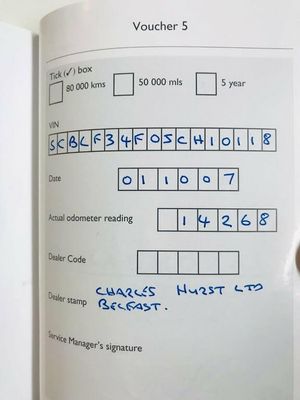 Voucher 5
Tick (✓) box
80 000 kms 50 000 mls 5 year
VIN
SCBLF34F05CH10118
Date
011007
Actual odometer reading
14268
Dealer Code
Dealer stamp CHARLES HURST LTD
BELFAST.
Service Manager's signature